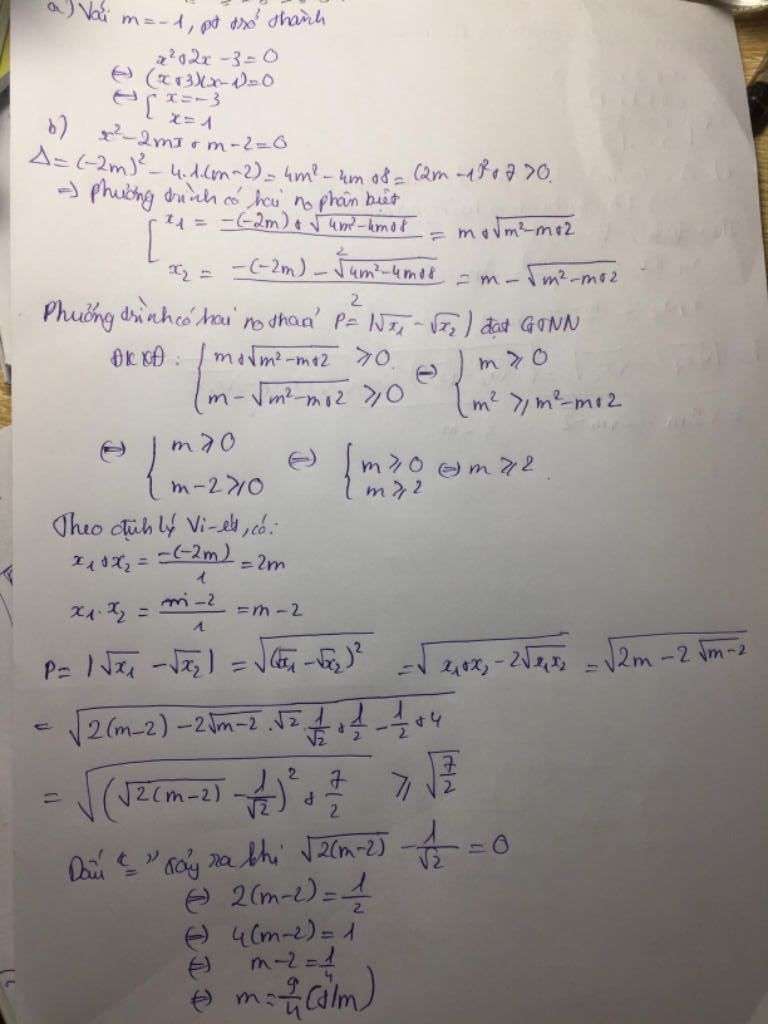 a) Với m = -1, pt trở thành
x² + 2x - 3 = 0
⇔ (x + 3)(x - 1) = 0
⇔ [ x = -3
x = 1
b) x² - 2mx + m - 2 = 0
Δ = (-2m)² - 4.1.(m-2) = 4m² - 4m + 8 = (2m - 1)² + 7 > 0.
⇒ phương trình có hai no phân biệt
[ x₁ = (-(-2m) + √(4m² - 4m + 8))/2 = m + √(m² - m + 2)
x₂ = (-(-2m) - √(4m² - 4m + 8))/2 = m - √(m² - m + 2)
Phương trình có hai no thoả P = |√x₁ - √x₂| đạt GTNN
ĐKXĐ: { m + √(m² - m + 2) ≥ 0 ⇔ { m ≥ 0
m - √(m² - m + 2) ≥ 0 m² ≥ m² - m + 2
⇔ { m ≥ 0 ⇔ { m ≥ 0 ⇔ m ≥ 2.
m - 2 ≥ 0 m ≥ 2
Theo định lý Vi-ét, có:
x₁ + x₂ = -(-2m)/1 = 2m
x₁.x₂ = (m - 2)/1 = m - 2
P = |√x₁ - √x₂| = √((√x₁ - √x₂)²) = √(x₁ + x₂ - 2√(x₁x₂)) = √(2m - 2√(m-2))
= √(2(m-2) - 2√(m-2) . √2 . 1/√2 + 1/2 - 1/2 + 4)
= √((√(2(m-2)) - 1/√2)² + 7/2) ≥ √(7/2)
Dấu "=" xảy ra khi √(2(m-2)) - 1/√2 = 0
⇔ 2(m-2) = 1/2
⇔ 4(m-2) = 1
⇔ m - 2 = 1/4
⇔ m = 9/4 (t/m)